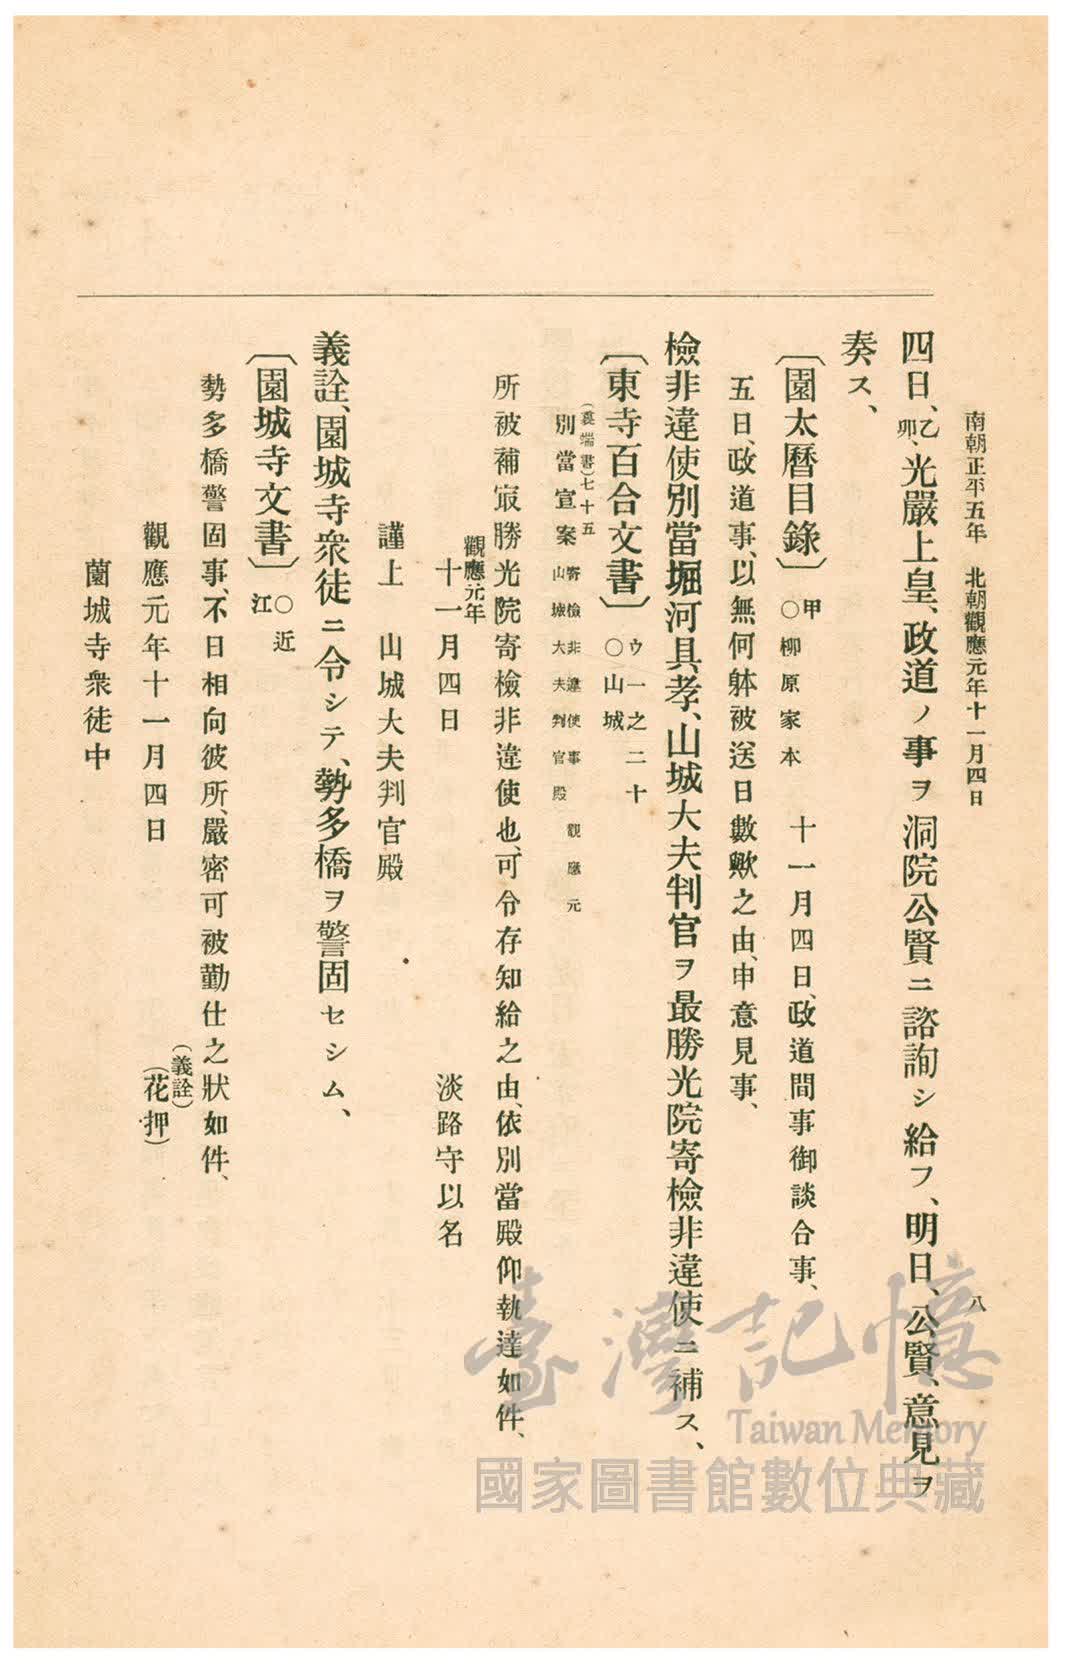 南朝正平五年　北朝觀應元年十一月四日
八
四日、乙卯、光嚴上皇、政道ノ事ヲ洞院公賢ニ諮詢シ給フ、明日、公賢、意見ヲ
奏ス、
〔園太曆目錄〕○甲柳原家本　十一月四日、政道間事御談合事、
五日、政道事、以無何躰被送日數歟之由、申意見事、
檢非違使別當堀河具孝、山城大夫判官ヲ最勝光院寄檢非違使ニ補ス、
〔東寺百合文書〕ウ一之二十○山城
(裏端書)七十五
別當宣案寄檢非違使事　觀應元山城大夫判官殿
所被補㝡勝光院寄檢非違使也、可令存知給之由、依別當殿仰執達如件、
觀應元年
十一月四日　淡路守以名
謹上　山城大夫判官殿
義詮、園城寺衆徒ニ令シテ、勢多橋ヲ警固セシム、
〔園城寺文書〕○近江
勢多橋警固事、不日相向彼所、嚴密可被勤仕之狀如件、
(義詮)
觀應元年十一月四日　(花押)
薗城寺衆徒中
臺灣記憶
Taiwan Memory
國家圖書館數位典藏